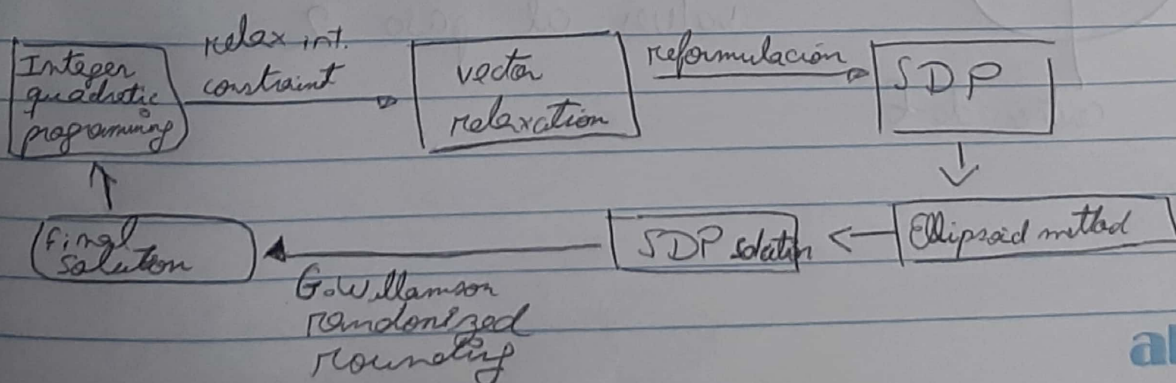 Integer
quadratic
programming
relax int.
constraint
vector
relaxation
reformulación
SDP
Ellipsoid method
SDP solution
G.Willamson
randonized
rounding
final
solution
al